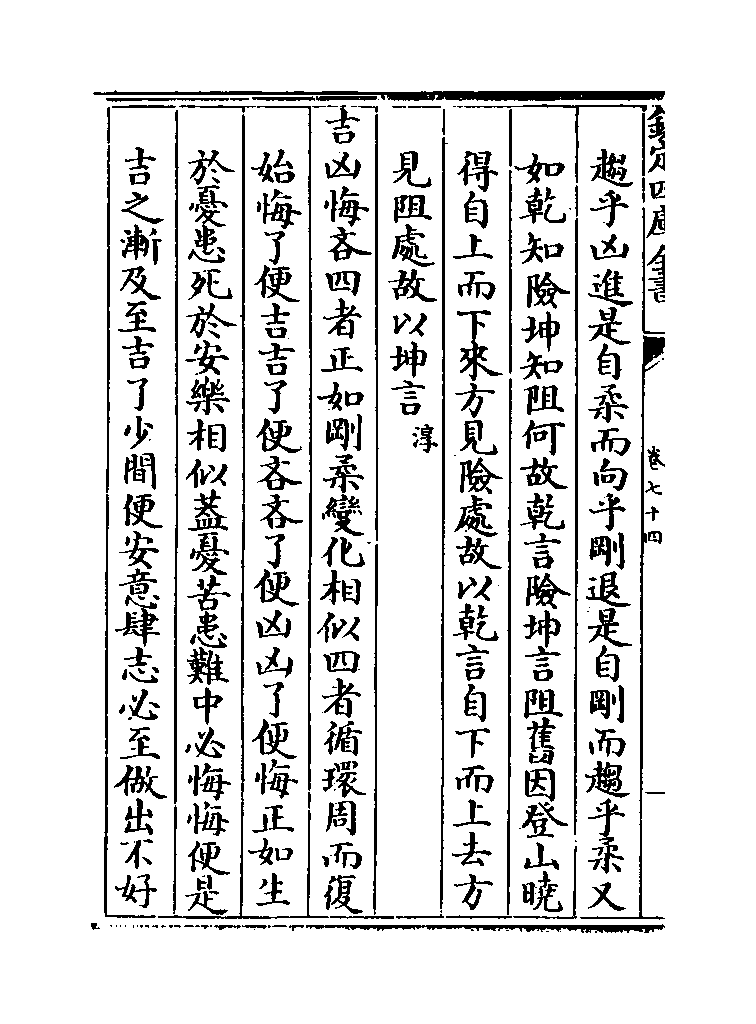 欽定四庫全書
卷七十四
趨乎凶進是自柔而向乎剛退是自剛而趨乎柔又
如乾知險坤知阻何故乾言險坤言阻舊因登山曉
得自上而下來方見險處故以乾言自下而上去方
見阻處故以坤言淳
吉凶悔吝四者正如剛柔變化相似四者循環周而復
始悔了便吉吉了便吝吝了便凶凶了便悔正如生
於憂患死於安樂相似蓋憂苦患難中必悔悔便是
吉之漸及至吉了少間便安意肆志必至做出不好